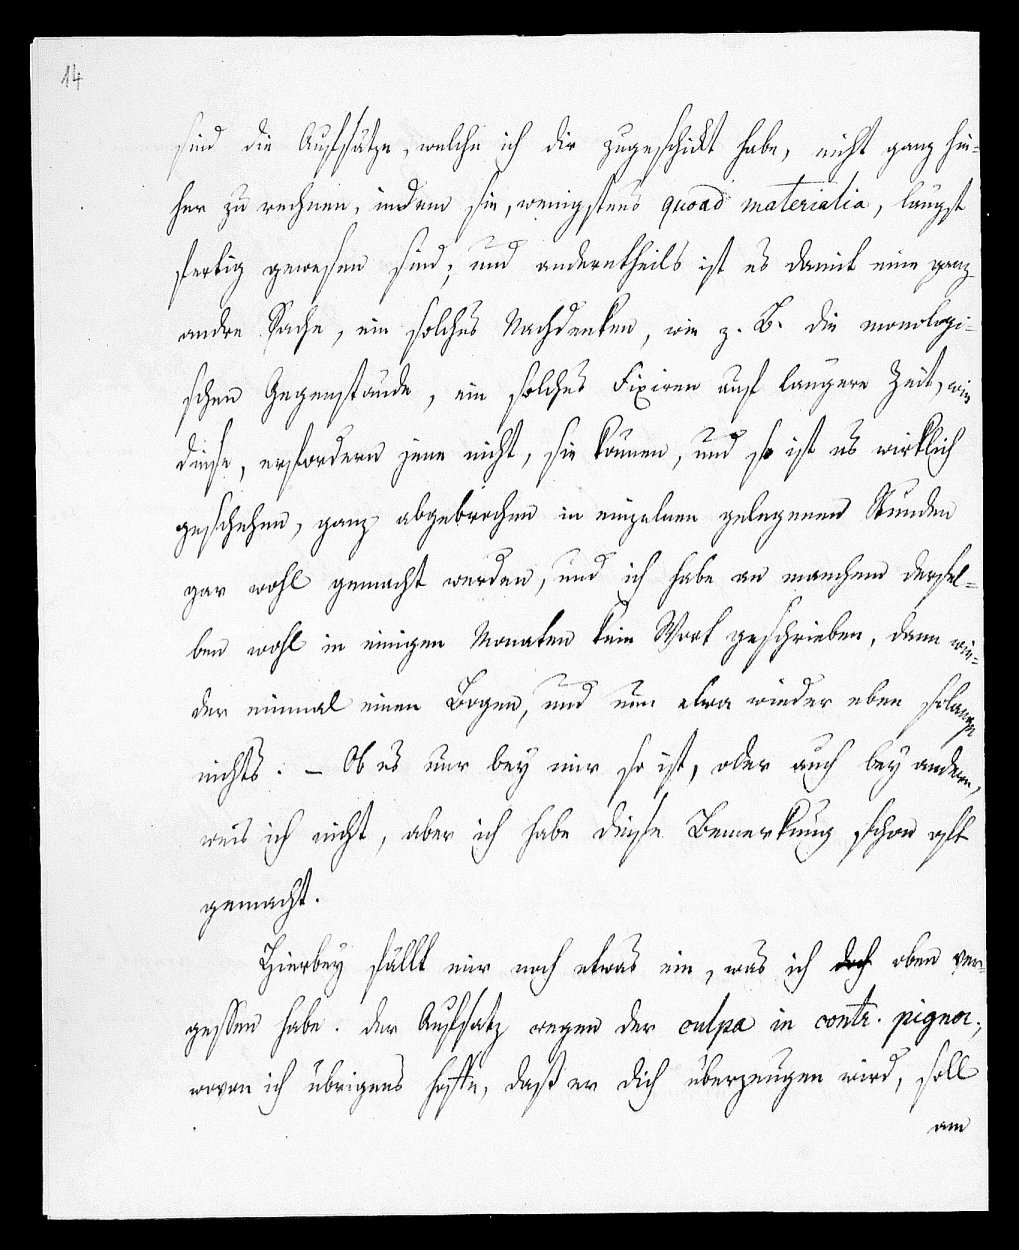 14
sind die Aufsätze, welche ich dir zugeschickt habe, nicht ganz hie-
her zu rechnen, indem sie, wenigstens quoad materialia, längst
fertig gewesen sind; und anderntheils ist es damit eine ganz
andre Sache, ein solches Nachdenken, wie z. B. die monologi-
schen Gegenstände, ein solches Fixiren auf längere Zeit, wie
diese, erfordern jene nicht, sie können, und so ist es wirklich
geschehen, ganz abgebrochen in einzelnen gelegenen Stunden
gar wohl gemacht werden, und ich habe an manchem dersel-
ben wohl in einigen Monaten kein Wort geschrieben, dann wie-
der einmal einen Bogen, und nun etwa wieder eben solange
nichts. – Ob es nur bey mir so ist, oder auch bey andern,
weis ich nicht, aber ich habe diese Bemerkung schon oft
gemacht.
Hierbey fällt mir noch etwas ein, was ich doch oben ver-
gessen habe. Der Aufsatz wegen der culpa in contr. pignor.,
wovon ich übrigens hoffe, daß er dich überzeugen wird, soll
am